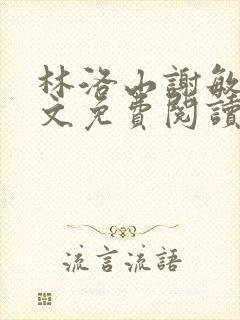 林洛山謝敏
文免費閱讀
流言流語